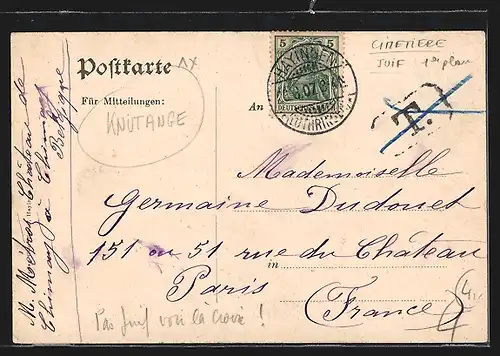 Postkarte
1x
Für Mitteilungen:
An
KNUTANGE
5 5
HAYINGEN
07
DEUTSCHES REICH
LOTHRINGEN
CIMETIERE
JUIF 1er plan
T.
Mademoiselle
Germaine Dudouet
151 ou 51 rue du Château
in
Paris
France
M. Château de
Chimay à Chimay
Belgique
Pas Juif voir la croix !